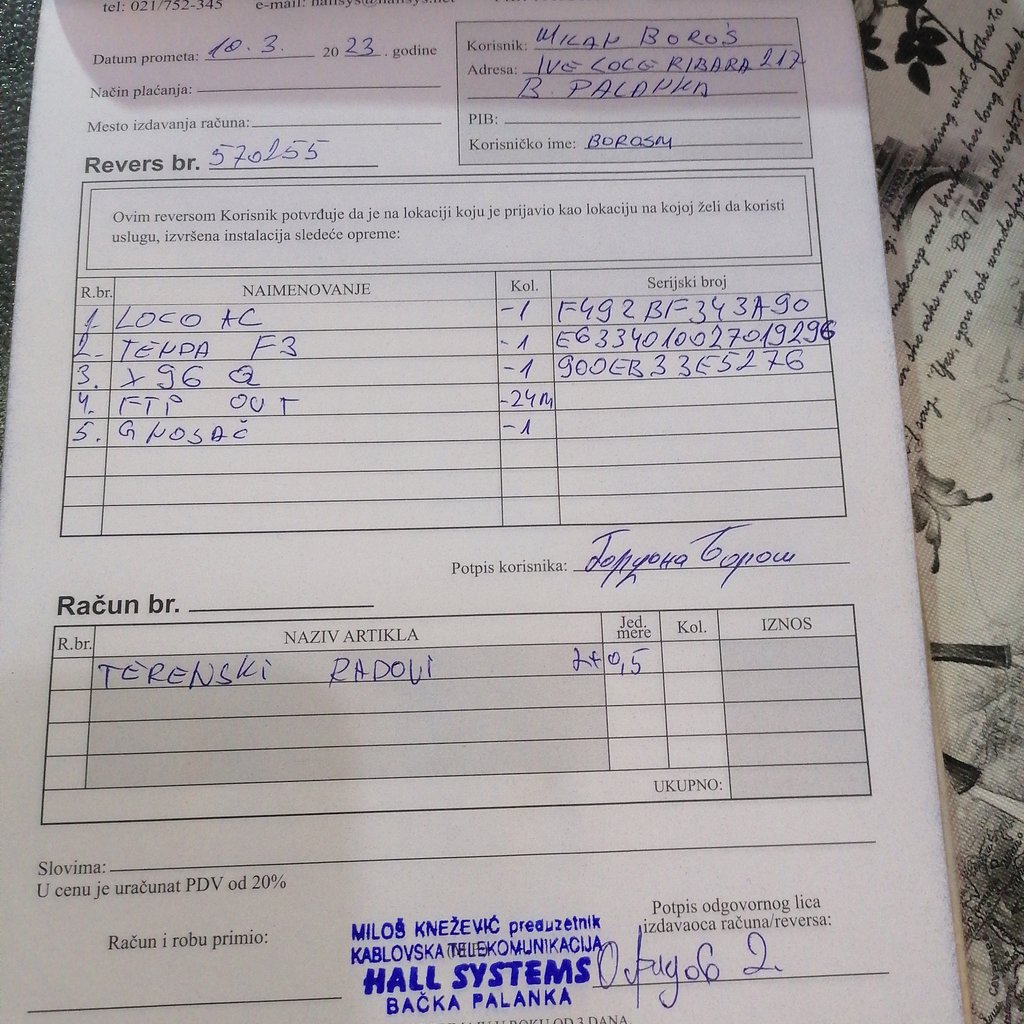 tel: 021/752-345 e-mail: hallsys@hallsys.net
Datum prometa: 10.3. 2023. godine
Način plaćanja:
Mesto izdavanja računa:
Korisnik: MILAN BOROŠ
Adresa: IVE LOLE RIBARA 217
B. PALANKA
PIB:
Korisničko ime: BOROSM
Revers br. 570255
Ovim reversom Korisnik potvrđuje da je na lokaciji koju je prijavio kao lokaciju na kojoj želi da koristi
uslugu, izvršena instalacija sledeće opreme:
R.br. NAIMENOVANJE Kol. Serijski broj
1. LOCO AC -1 F492BF343A90
2. TENDA F3 -1 E6334010027019296
3. X96 Q -1 900EB33E5276
4. FTP OUT -24M
5. G NOSAČ -1
Potpis korisnika: Гордана Борош
Račun br.
R.br. NAZIV ARTIKLA Jed. mere Kol. IZNOS
TERENSKI RADOVI 2+0,5
UKUPNO:
Slovima:
U cenu je uračunat PDV od 20%
Račun i robu primio:
Potpis odgovornog lica
izdavaoca računa/reversa:
MILOŠ KNEŽEVIĆ preduzetnik
KABLOVSKA TELEKOMUNIKACIJA
HALL SYSTEMS
BAČKA PALANKA
U ROKU OD 3 DANA.